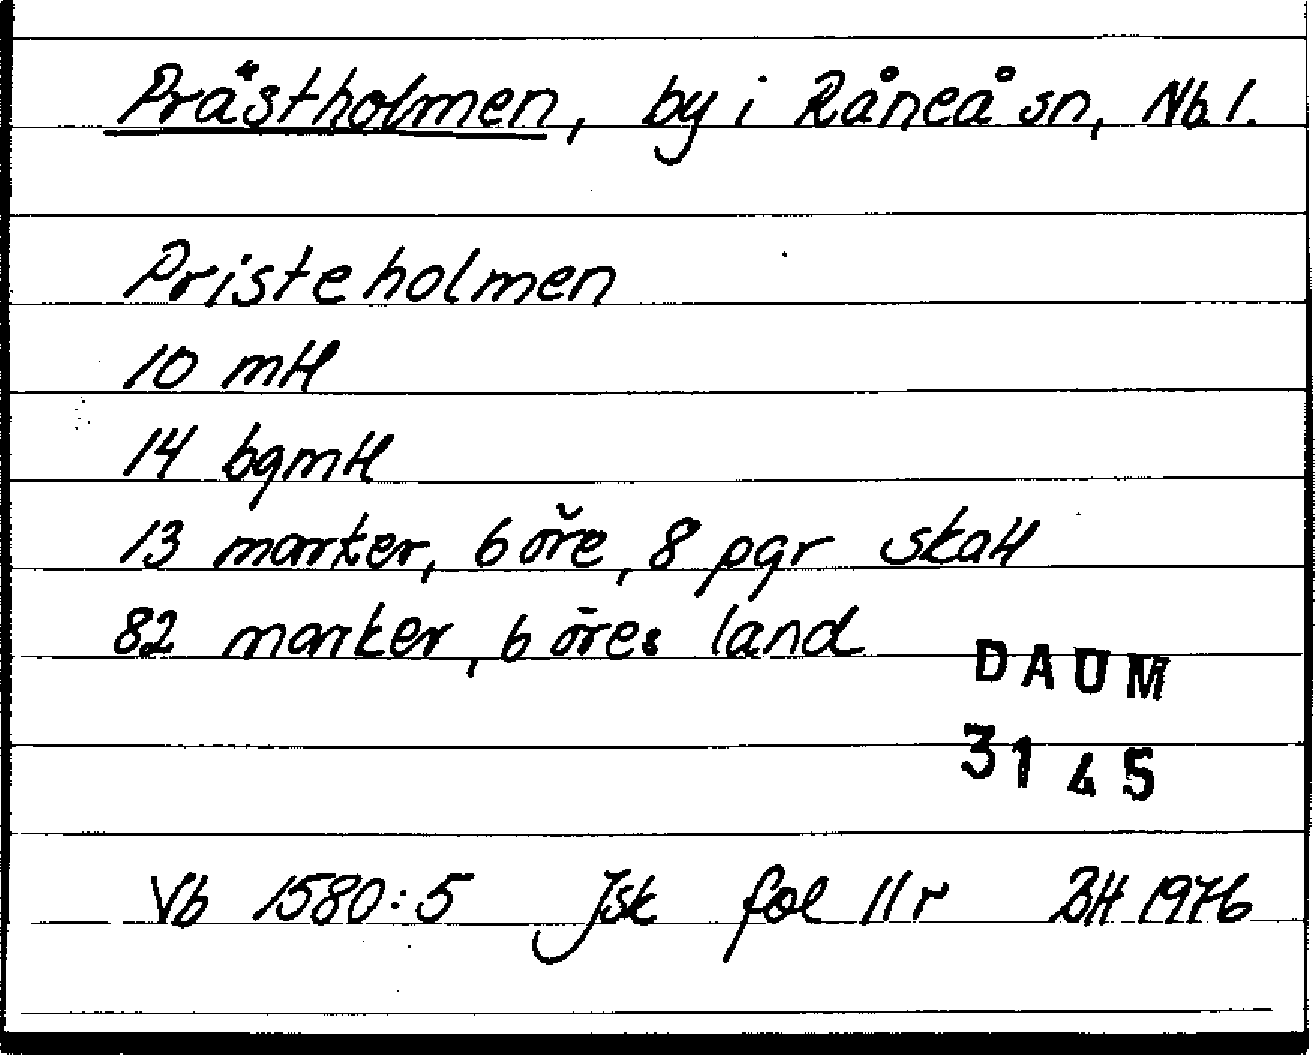 Prästholmen, by i Råneå sn, Nb l.
Pristeholmen
10 mtl
14 bgmtl
13 marker, 6 öre, 8 pgr skatt
82 marker, 6 öres land
DAUM
3145
Vb 1580:5 Jsk fol 11 r BH 1976